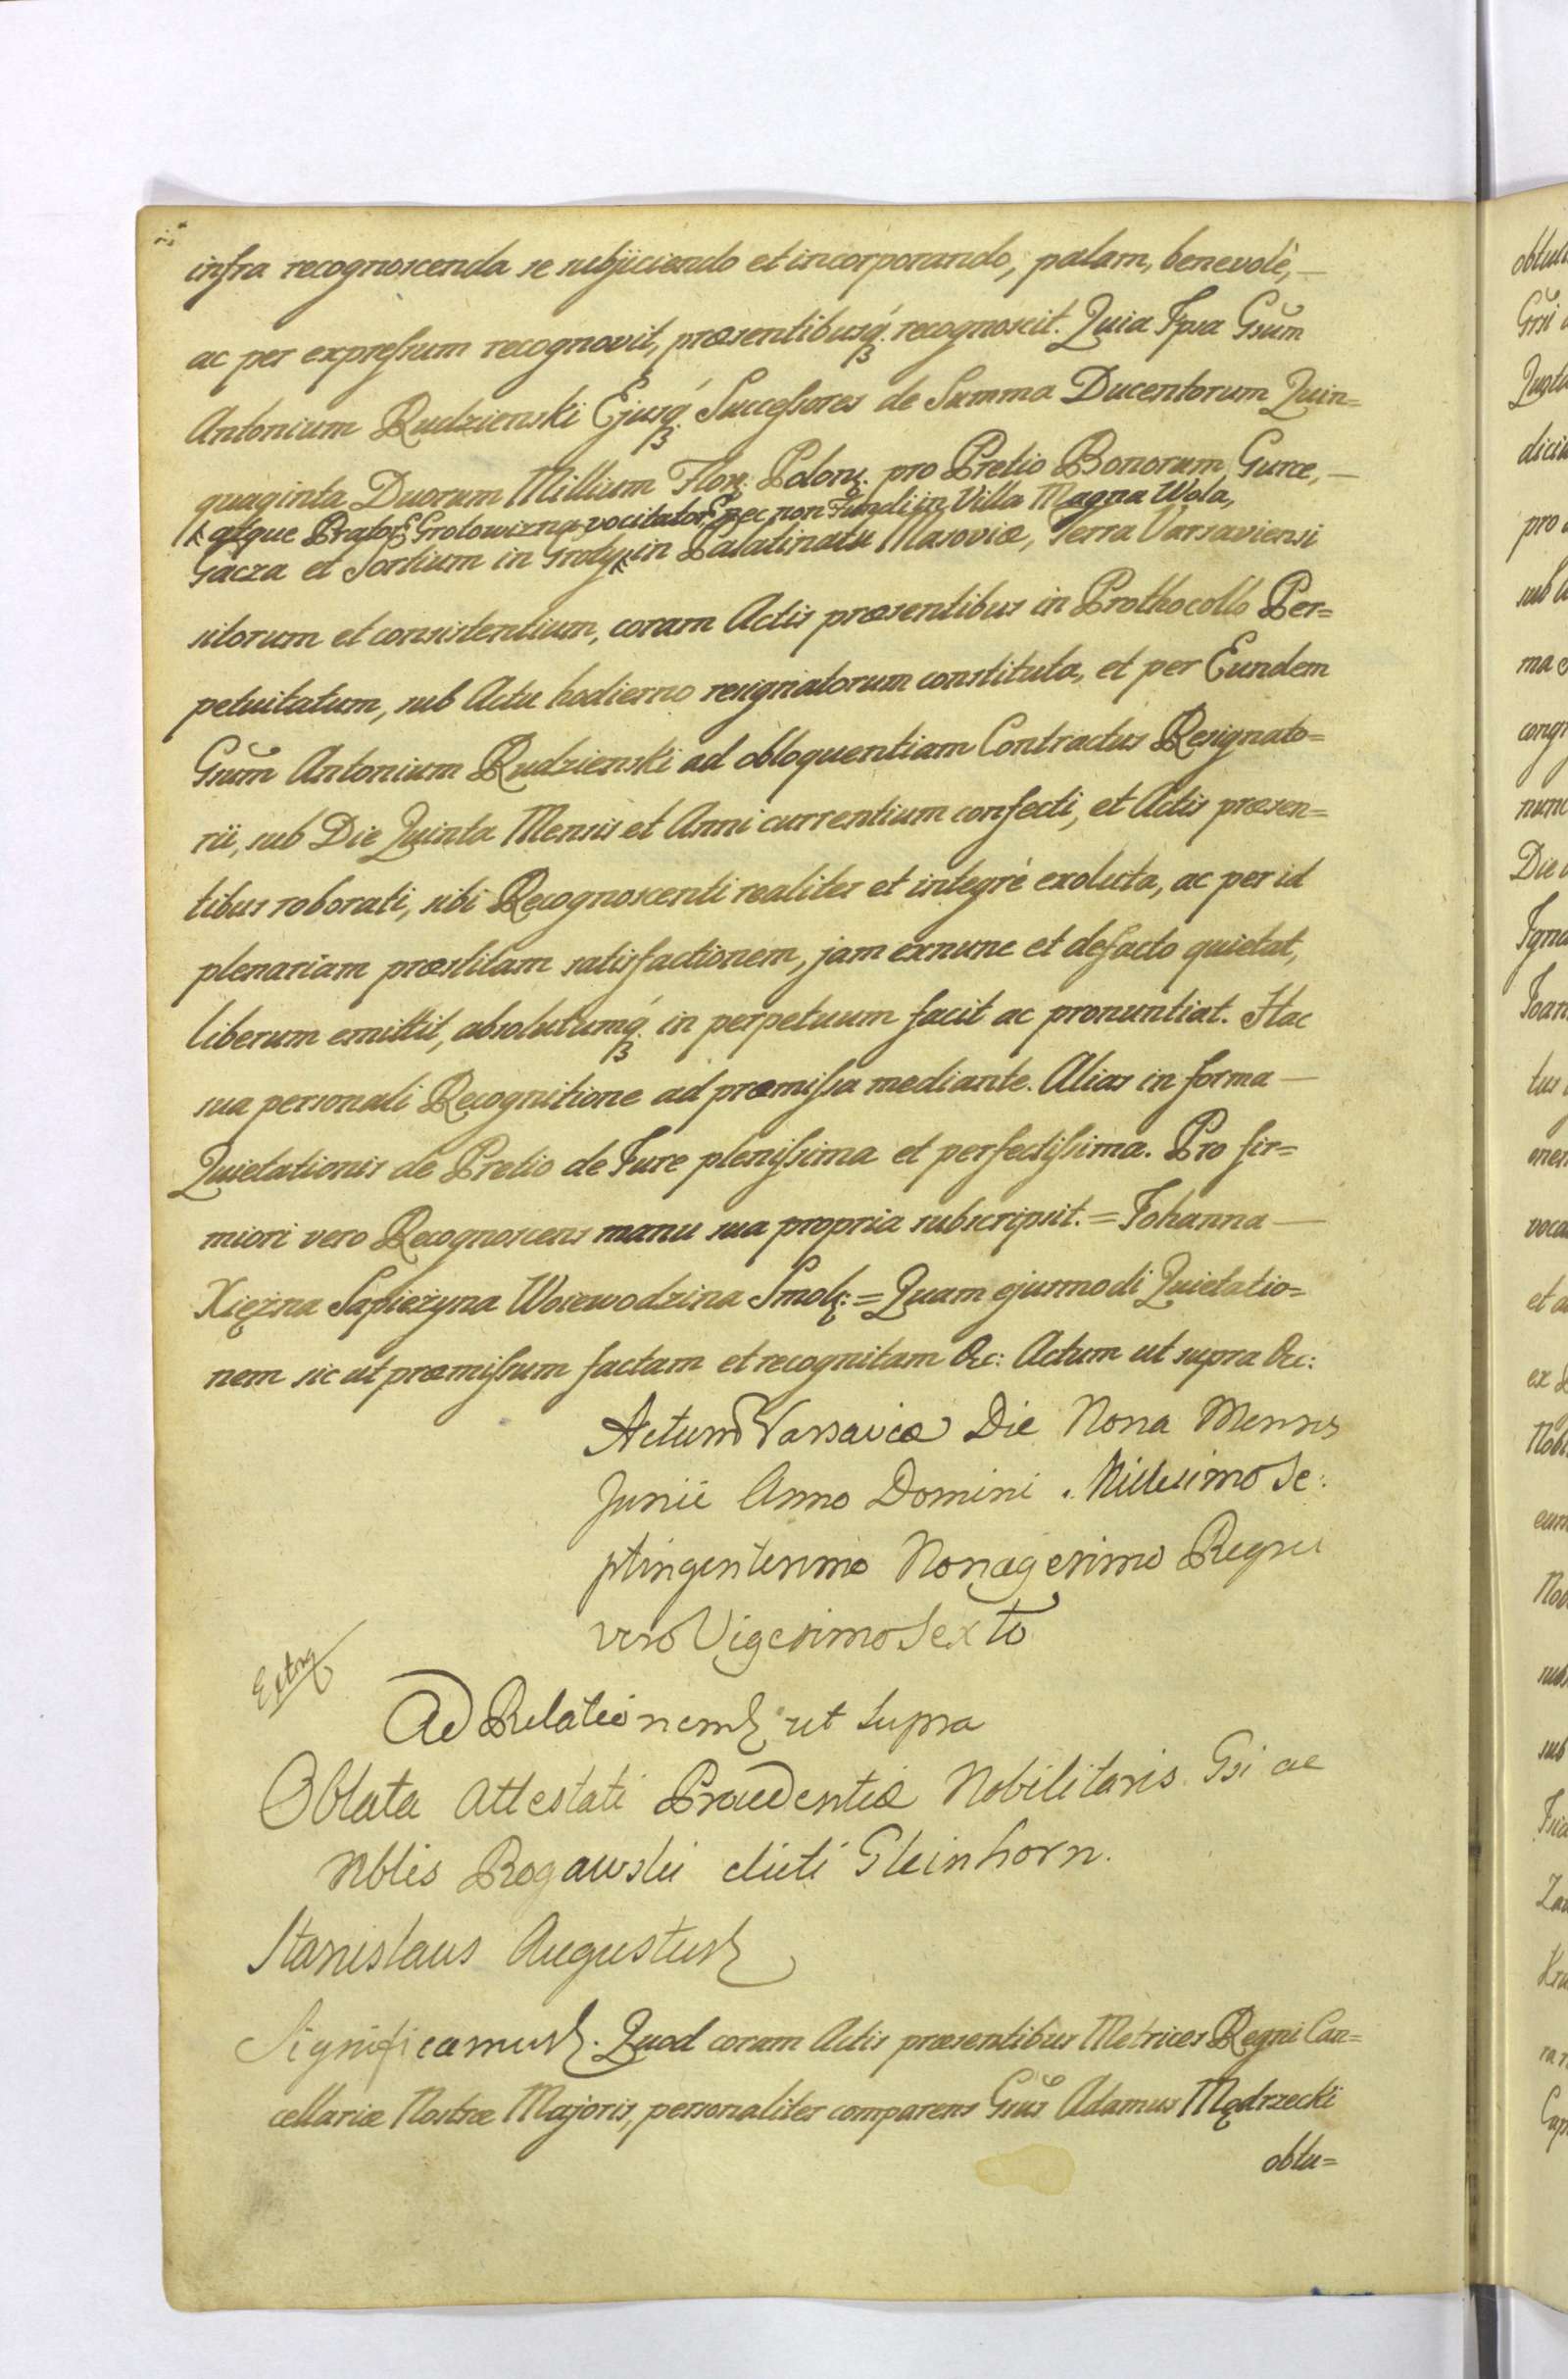 infra recognoscenda se subjiciendo et incorporando, palam, benevolè, —
ac per expreſsum recognovit, præsentibusq́ꝫ recognoscit. Quia Ipsa Gsum
Antonium Rudzienski Ejusq́ꝫ Succeſsores de Summa Ducentorum Quin=
quaginta Duorum Millium Flor: Polon: pro Pretio Bonorum Gurce, —
atque Prator: Grotowizna vocitator: nec non Fundi in Villa Magna Wola,
Gacza et Sortium in Grody in Palatinatu Masoviæ, Terra Varsaviensi
sitorum et consistentium, coram Actis præsentibus in Prothocollo Per=
petuitatum, sub Actu hodierno resignatorum constituta, et per Eundem
Gsum Antonium Rudzienski ad obloquentiam Contractus Resignato=
rii, sub Die Quinta Mensis et Anni currentium confecti, et Actis præsen=
tibus roborati, sibi Recognoscenti realiter et integrè exoluta, ac per id
plenariam præstitam satisfactionem, jam exnunc et defacto quietat,
liberum emittit, absolutumq́ꝫ in perpetuum facit ac pronuntiat. Hac
sua personali Recognitione ad præmiſsa mediante. Alias in forma —
Quietationis de Pretio de Jure pleniſsima et perfectiſsima. Pro fir=
miori vero Recognoscens manu sua propria subscripsit. = Johanna —
Xiężna Sapieżyna Woiewodzina Smol: = Quam ejusmodi Quietatio=
nem sic ut præmiſsum factam et recognitam &c: Actum ut supra &c:
Actum Varsaviæ Die Nona Mensis
Junii Anno Domini Millesimo Se:
ptingentesimo Nonagesimo Regni
vero Vigesimo Sexto
Ad Relationem ut supra
Oblata Attestati Prudentiæ Nobilitaris Gsi ac
Nblis Rogawski dicti Steinhorn.
Stanislaus Augustus
Significamus. Quod coram Actis præsentibus Metrices Regni Can=
cellariæ Nostræ Majoris, personaliter comparens Gsus Adamus Mądrzecki
obtu=